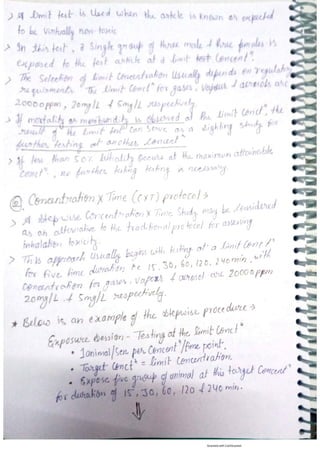 > A limit test is used when the article is known or expected
to be virtually non-toxic
> In this test, a single group of three male & three females is
exposed to the test article at a limit test Concentⁿ.
> The Selection of limit Concentration usually depends on regulatory
requirements. The limit Concⁿ for gases, vapours & aerosols are
20000ppm, 20mg/L & 5mg/L respectively
> If mortality or morbundity is observed at the limit Concⁿ, the
result of the limit test can serve as a sighting study for
further testing at another concentⁿ.
> If less than 50% lethality occurs at the maximum attainable
Concⁿ, no further testing is necessary
② Concentration x Time (CxT) protocol →
> A step wise Concentration x Time Study may be considered
as an alternative to the traditional protocol for assessing
inhalation toxicity.
> This approach usually begins with testing at a limit Concⁿ
for five time duration i.e 15, 30, 60, 120, 240min. with
Concentration for gases, vapors & aerosol are 20000ppm
20mg/L & 5mg/L respectively.
* Below is an example of the stepwise procedure →
Exposure session - Testing at the limit Concⁿ
• 1animal/sex per Concentⁿ/time point.
• Target Concⁿ = limit Concentration
• Expose five group of animal at this target Concentⁿ
for duration of 15, 30, 60, 120 & 240 min.
Scanned with CamScanner